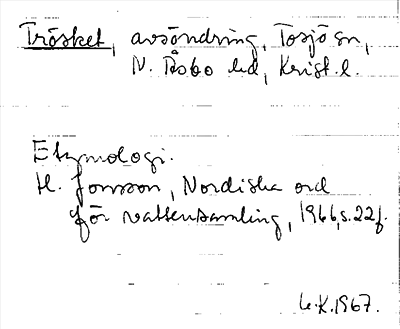 Trösket, avsöndring, Tosjö sn,
N. Åsbo hd, Krist. l.
Etymologi.
H. Jonsson, Nordiska ord
för vattensamling, 1966, s. 22f.
1967.